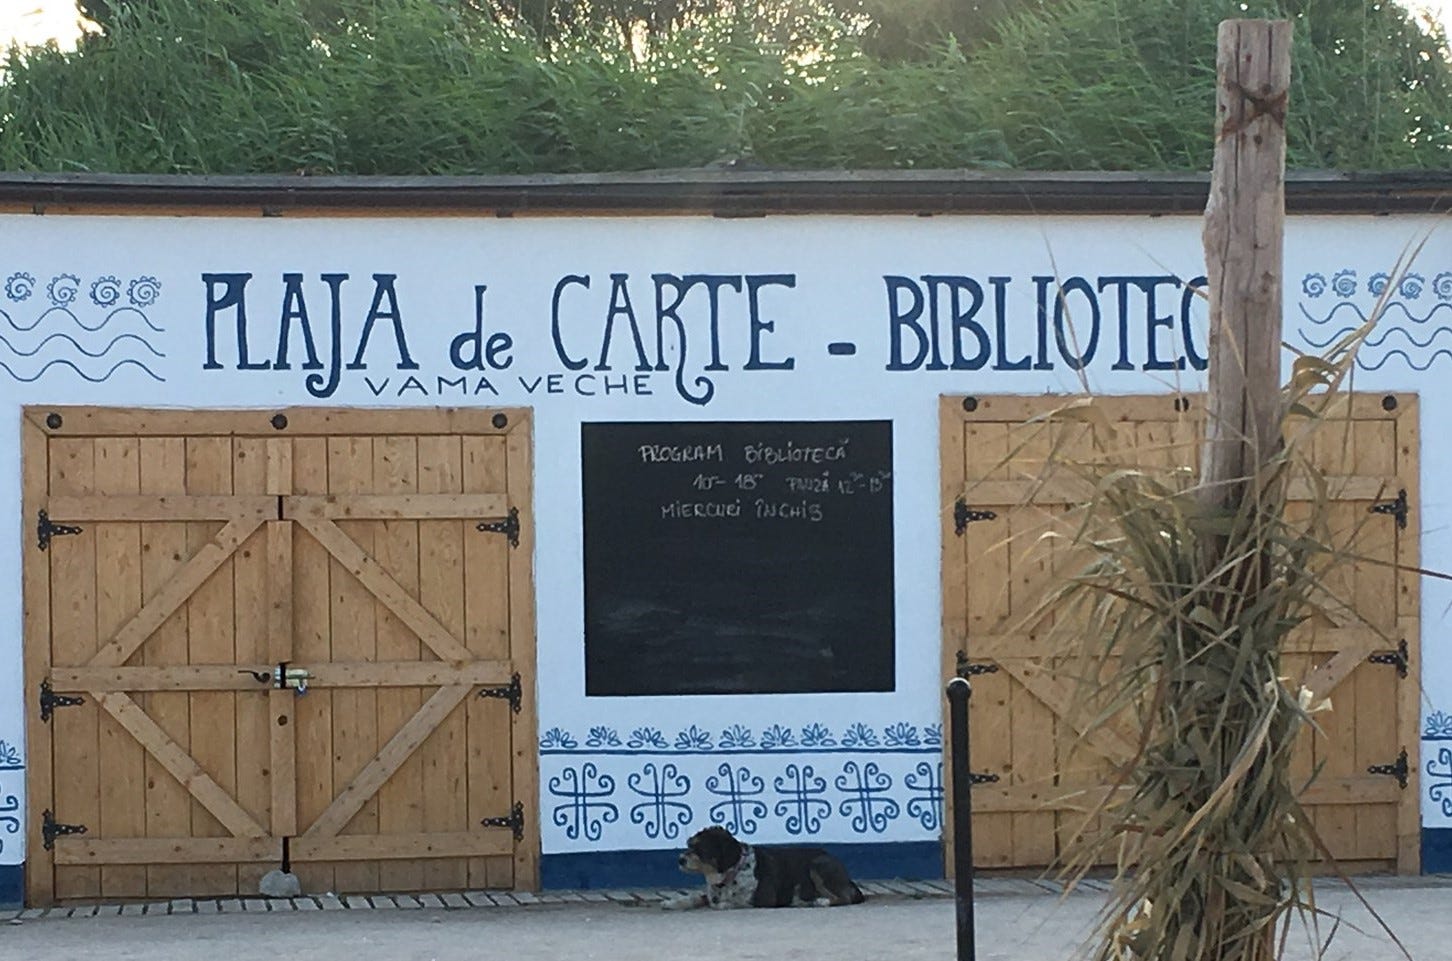 PLAJA de CARTE - BIBLIOTEC
VAMA VECHE
PROGRAM BIBLIOTECĂ
10⁰⁰- 18⁰⁰ PAUZĂ 12³⁰-13³⁰
MIERCURI ÎNCHIS